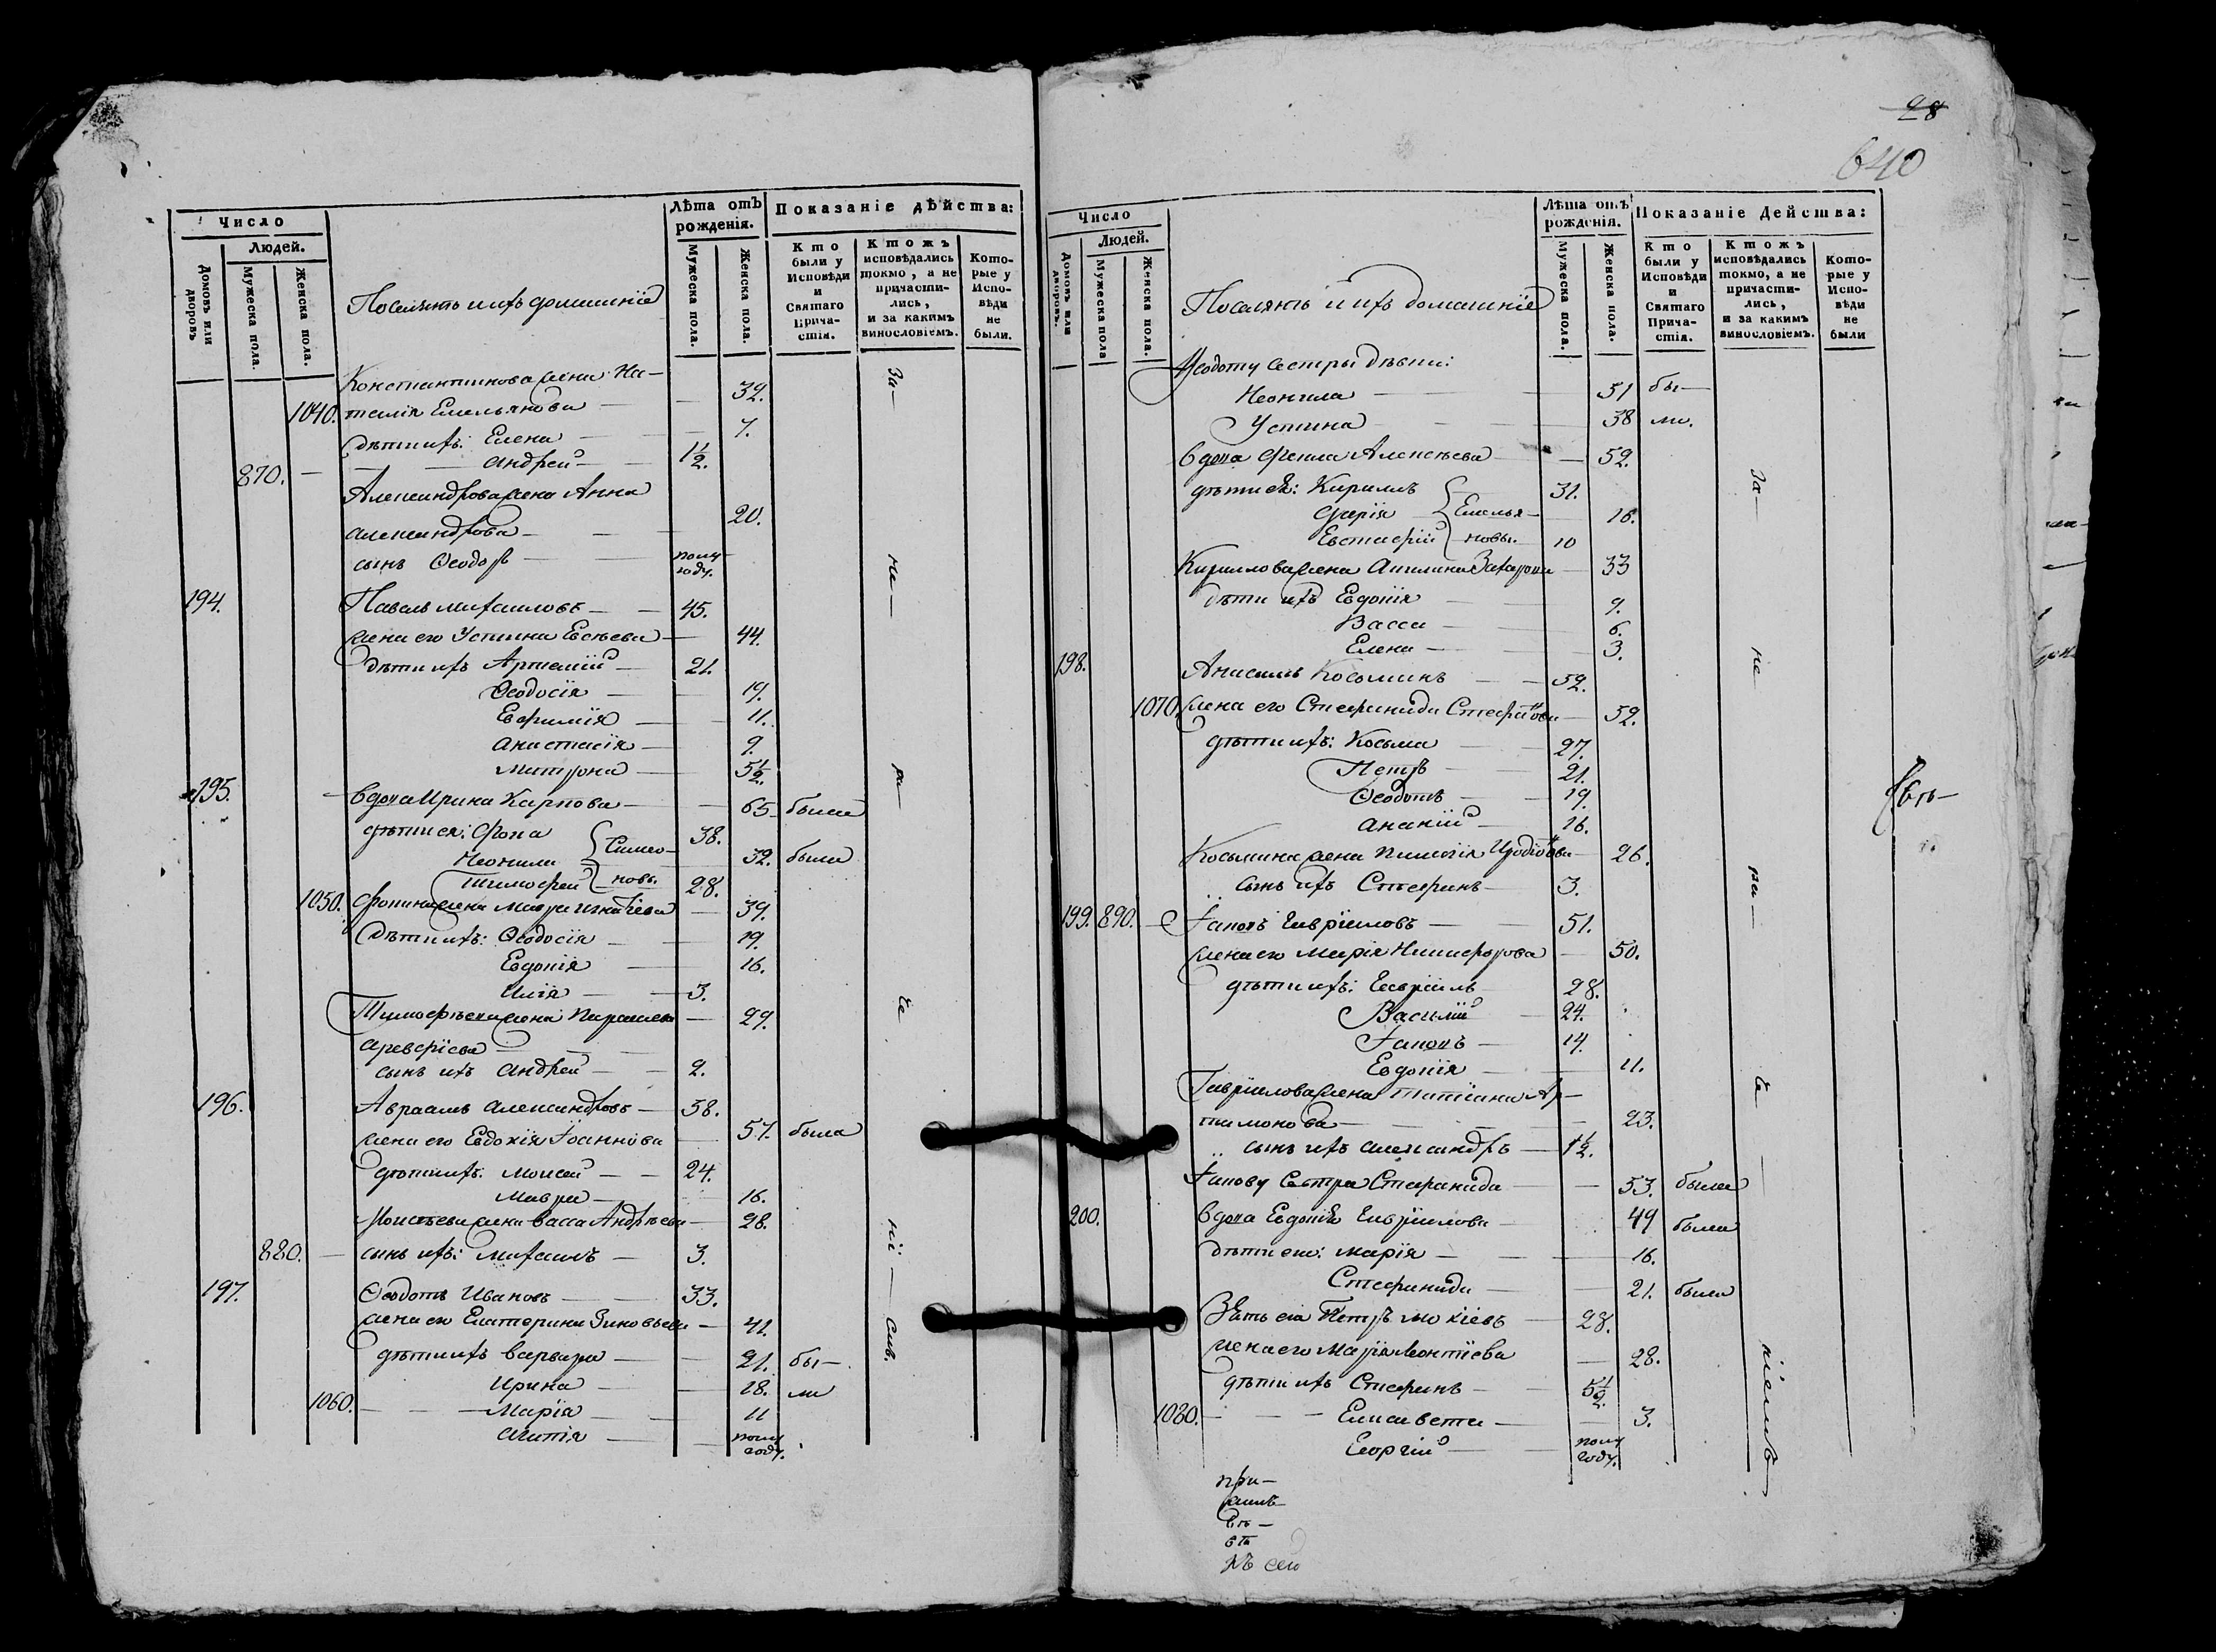 Число
Людей.
Домовъ или дворовъ
Мужеска пола.
Женска пола.
Поселянъ и ихъ домашніе
Лѣта отъ рожденія.
Мужеска пола.
Женска пола.
Показаніе дѣйства:
Кто были у Исповѣди и Святаго Прича- стія.
Ктожъ исповѣдались токмо, а не причасти- лись, и за какимъ винословіемъ.
Кото- рые у Испо- вѣди не были.
Константинова жена На- 32.
1040. талія Емельянова
дѣти ихъ: Елена 7.
870. Андрей 1½.
Александрова жена Анна
Александрова 20.
сынъ Ѳеодоръ полу году.
194. Павелъ Михаиловъ 45.
жена его Устина Евсѣева 44.
дѣти ихъ Артемій 21.
Ѳеодосія 19.
Евфимія 11.
Анастасія 9.
Матрона 5½.
195. вдова Ирина Карпова 65 была
дѣти ея: Фока 38.
Неонила Симео- 32. была
Тимофей новы 28.
1050. Фокина жена Мавра Игнатіева 39.
дѣти ихъ: Ѳеодосія 19.
Евдокія 16.
Илія 3.
Тимофѣева жена Параскева 29.
Аревѳіева
сынъ ихъ Андрей 2.
196. Авраамъ Александровъ 58.
жена его Евдокія Іоаннова 57. была
дѣти ихъ: Моисей 24.
Мавра 16.
Моисѣева жена Васса Андрѣева 28.
880. сынъ ихъ: Михаилъ 3.
197. Ѳеодотъ Ивановъ 33.
жена его Екатерина Зиновьева 41.
дѣти ихъ Варвара 21. бы-
Ирина 18. ли
1060. Марія 11
полу году.
За- не- ра- че- ні- емъ.
28
640
Число
Людей.
Домовъ или дворовъ.
Мужеска пола
Женска пола.
Поселянъ и ихъ домашніе
Лѣта отъ рожденія.
Мужеска пола.
Женска пола.
Показаніе Действа:
Кто были у Исповѣди и Святаго Прича- стія.
Ктожъ исповѣдались токмо, а не причасти- лись, и за какимъ винословіемъ.
Кото- рые у Испо- вѣди не были
Ѳеодоту сестры дѣвки:
Неонила 51 бы-
Устина 38 ли.
вдова Фекла Алексѣева 52.
дѣти ея: Кириллъ 31.
Дарія Емелья- 16.
Евстафій новы. 10
Кириллова жена Акилина Захарова 33
дѣти ихъ Евдокія 9.
Васса 6.
Елена 3.
198. Анисимъ Косминъ 52.
1070. жена его Стефанида Стефанова 52.
дѣти ихъ: Косьма 27.
Петръ 21.
Ѳеодотъ 19.
Ананій 16.
Косьмина жена Пелагія 26.
сынъ ихъ Стефанъ 3.
199. 890. Іаковъ Гавріиловъ 51.
жена его Марія Никифорова 50.
дѣти ихъ: Гавріилъ 28.
Василій 24.
Іаковъ 14.
Евдокія 11.
Гавріилова жена Татіана Ар-
тамонова 23.
сынъ ихъ Александръ 1½.
Іакову сестра Стефанида 53. была
200. вдова Евдокія Гавріилова 49 была
дѣти ея: Марія 16.
Стефанида 21. была
Зять ея Петръ Мокіевъ 28.
жена его Марія Леонтіева 28.
дѣти ихъ Стефанъ 5½.
1080. Елисавета 3.
Георгій полу году.
За- не ра- че ніемъ